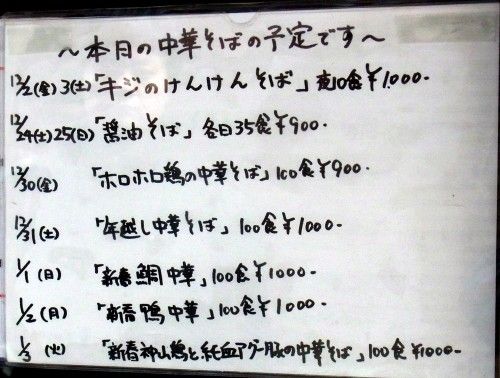 ～本日の中華そばの予定です～
12/2(金)3(土)「キジのけんけんそば」夜10食¥1.000-
12/24(土)25(日)「醤油そば」各日35食¥900-
12/30(金)「ホロホロ鶏の中華そば」100食¥900-
12/31(土)「年越し中華そば」100食¥1000-
1/1(日)「新春鯛中華」100食¥1000-
1/2(月)「新春鴨中華」100食¥1000-
1/3(火)「新春神山鶏と純血アグー豚の中華そば」100食¥1000-